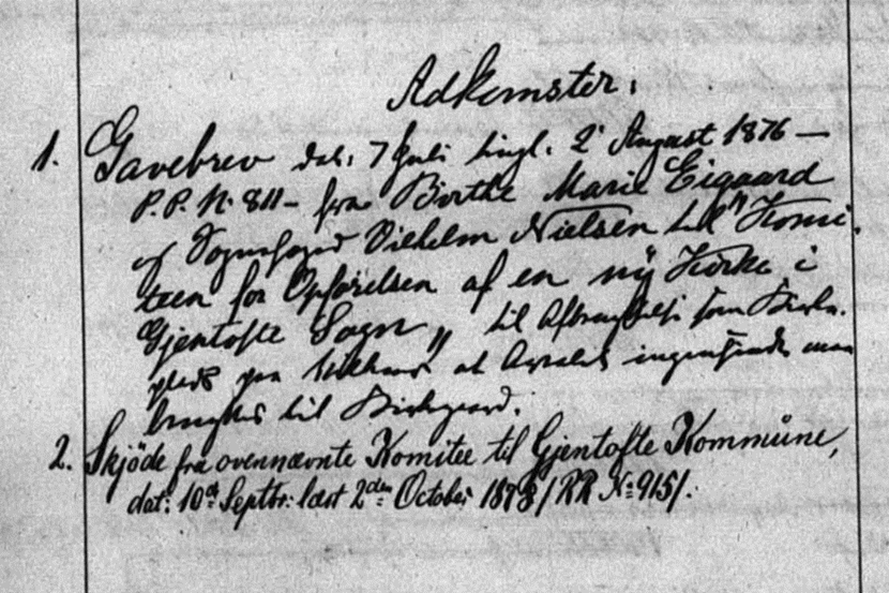 Adkomster.
1. Gavebrev dat. 7 Juli tingl. 2' August 1876 —
P.P. N. 811 – fra Birthe Marie Eigaard
af Sognefoged Vilhelm Nielsen til "Komi-
teen for Opførelsen af en ny Kirke i
Gjentofte Sogn „ til Afbenyttelse som Kirke-
plads paa Vilkaar at Arealet ingensinde maa
benyttes til Kirkegaard.
2. Skjöde fra ovennævnte Komitee til Gjentofte Kommune,
dat: 10d Septbr: læst 2den October 1878 / RR No 915/.